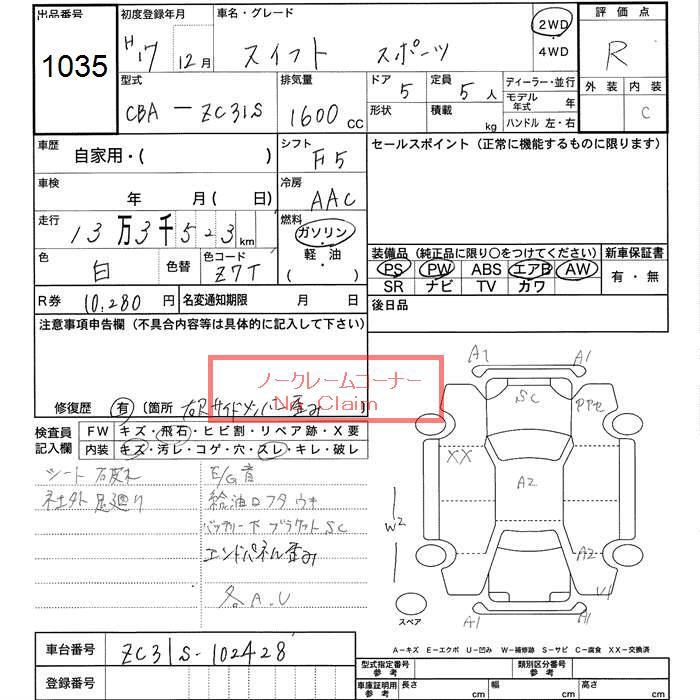 出品番号 初度登録年月 車名・グレード 評価点
1035 H17 12月 スイフト スポーツ 2WD・4WD R
型式 排気量 ドア 定員 ディーラー・並行 外装 内装
CBA-ZC31S 1600cc 5 5人 モデル年式 年 C
形状 積載 kg ハンドル 左・右
車歴 シフト セールスポイント(正常に機能するものに限ります)
自家用・( ) F5
車検 冷房
年 月( 日) AAC
走行 燃料
13万3千523km ガソリン・軽油
( )
色 白 色替 色コード Z7T
装備品(純正品に限り○をつけてください) 新車保証書
PS PW ABS エアB AW 有・無
SR ナビ TV カワ
R券 10,280円 名変通知期限 月 日 後日品
注意事項申告欄(不具合内容等は具体的に記入して下さい)
ノークレームコーナー
No Claim
修復歴 有 〔箇所 右Rサイドメンバー歪み 〕
検査員記入欄 FW キズ・飛石・ヒビ割・リペア跡・X要
内装 キズ・汚レ・コゲ・穴・スレ・キレ・破レ
シート E/G音
社外足廻り 給油口フタウキ
バッテリー下ブラケットSC
エンドパネル歪み
各A.U
A1 A1
SC
XX
A2
W2
A2
U1
スペア A1 A1
A-キズ E-エクボ U-凹み W-補修跡 S-サビ C-腐食 XX-交換済
車台番号 ZC31S-102428
型式指定番号 参考 類別区分番号 参考
登録番号 車庫証明用 参考 長さ cm 幅 cm 高さ cm